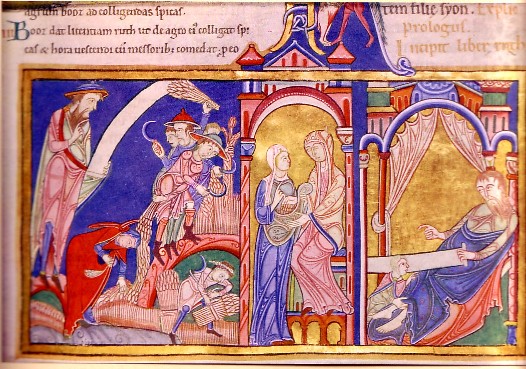 agrum boor ad colligendas spicas.
Boor dat licentiam ruth ut de agro ei' colligat spi
cas & hora vescendi cū messorib; comedat. peo
tem filie syon. Explic
Prologus.
Incipit liber regū